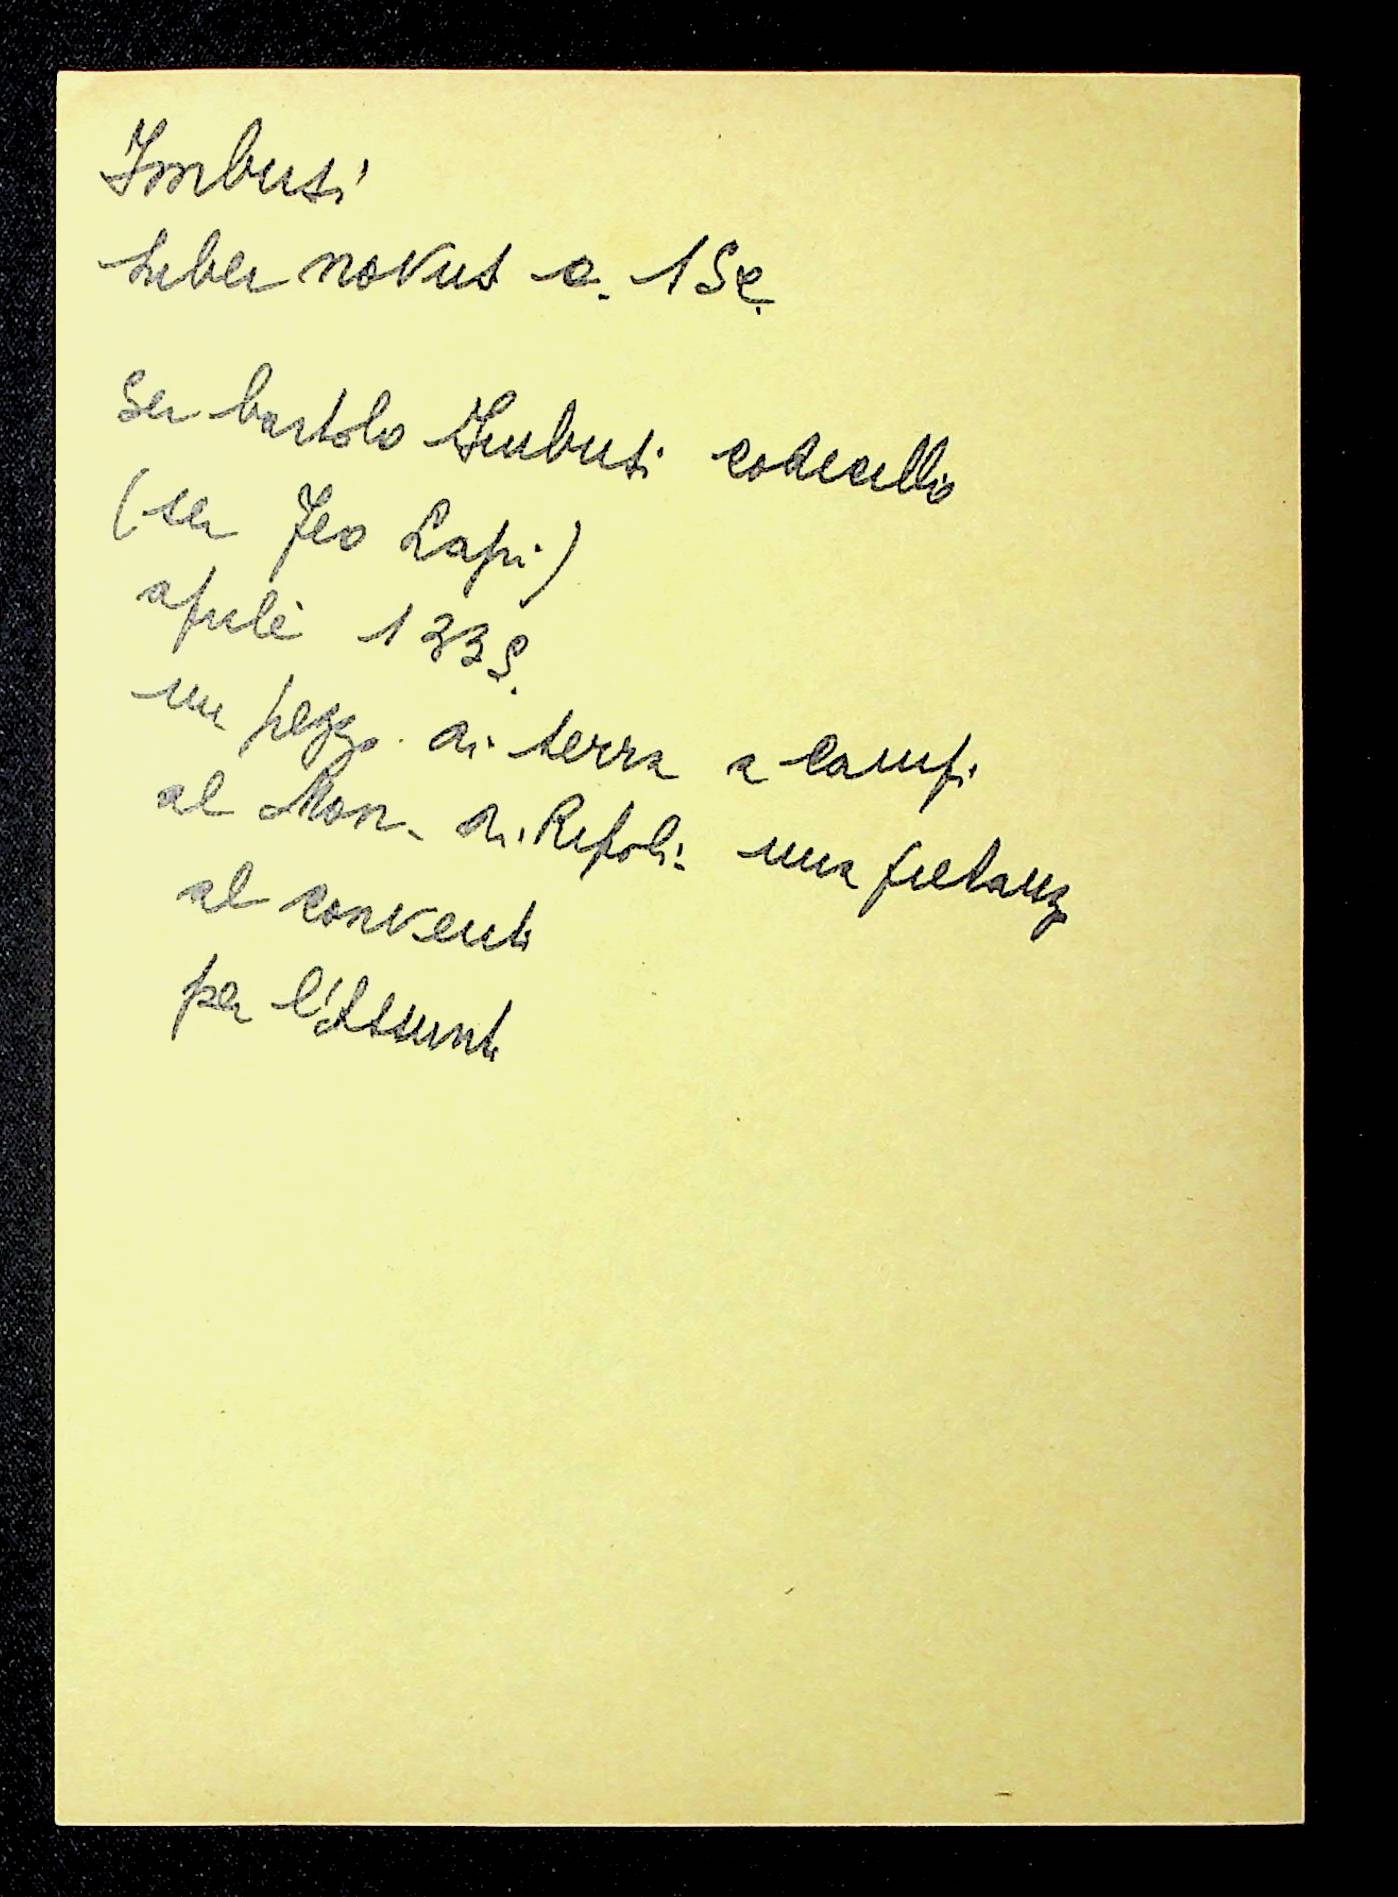 Imbusi
Liber novus c. 15c.
Ser bartolo Imbusi codicillo
(ser Feo Lapi)
aprile 1335.
un pezzo di terra a Campi
al Mon. di Ripoli. una pietanz
al convent
per l'Assunt